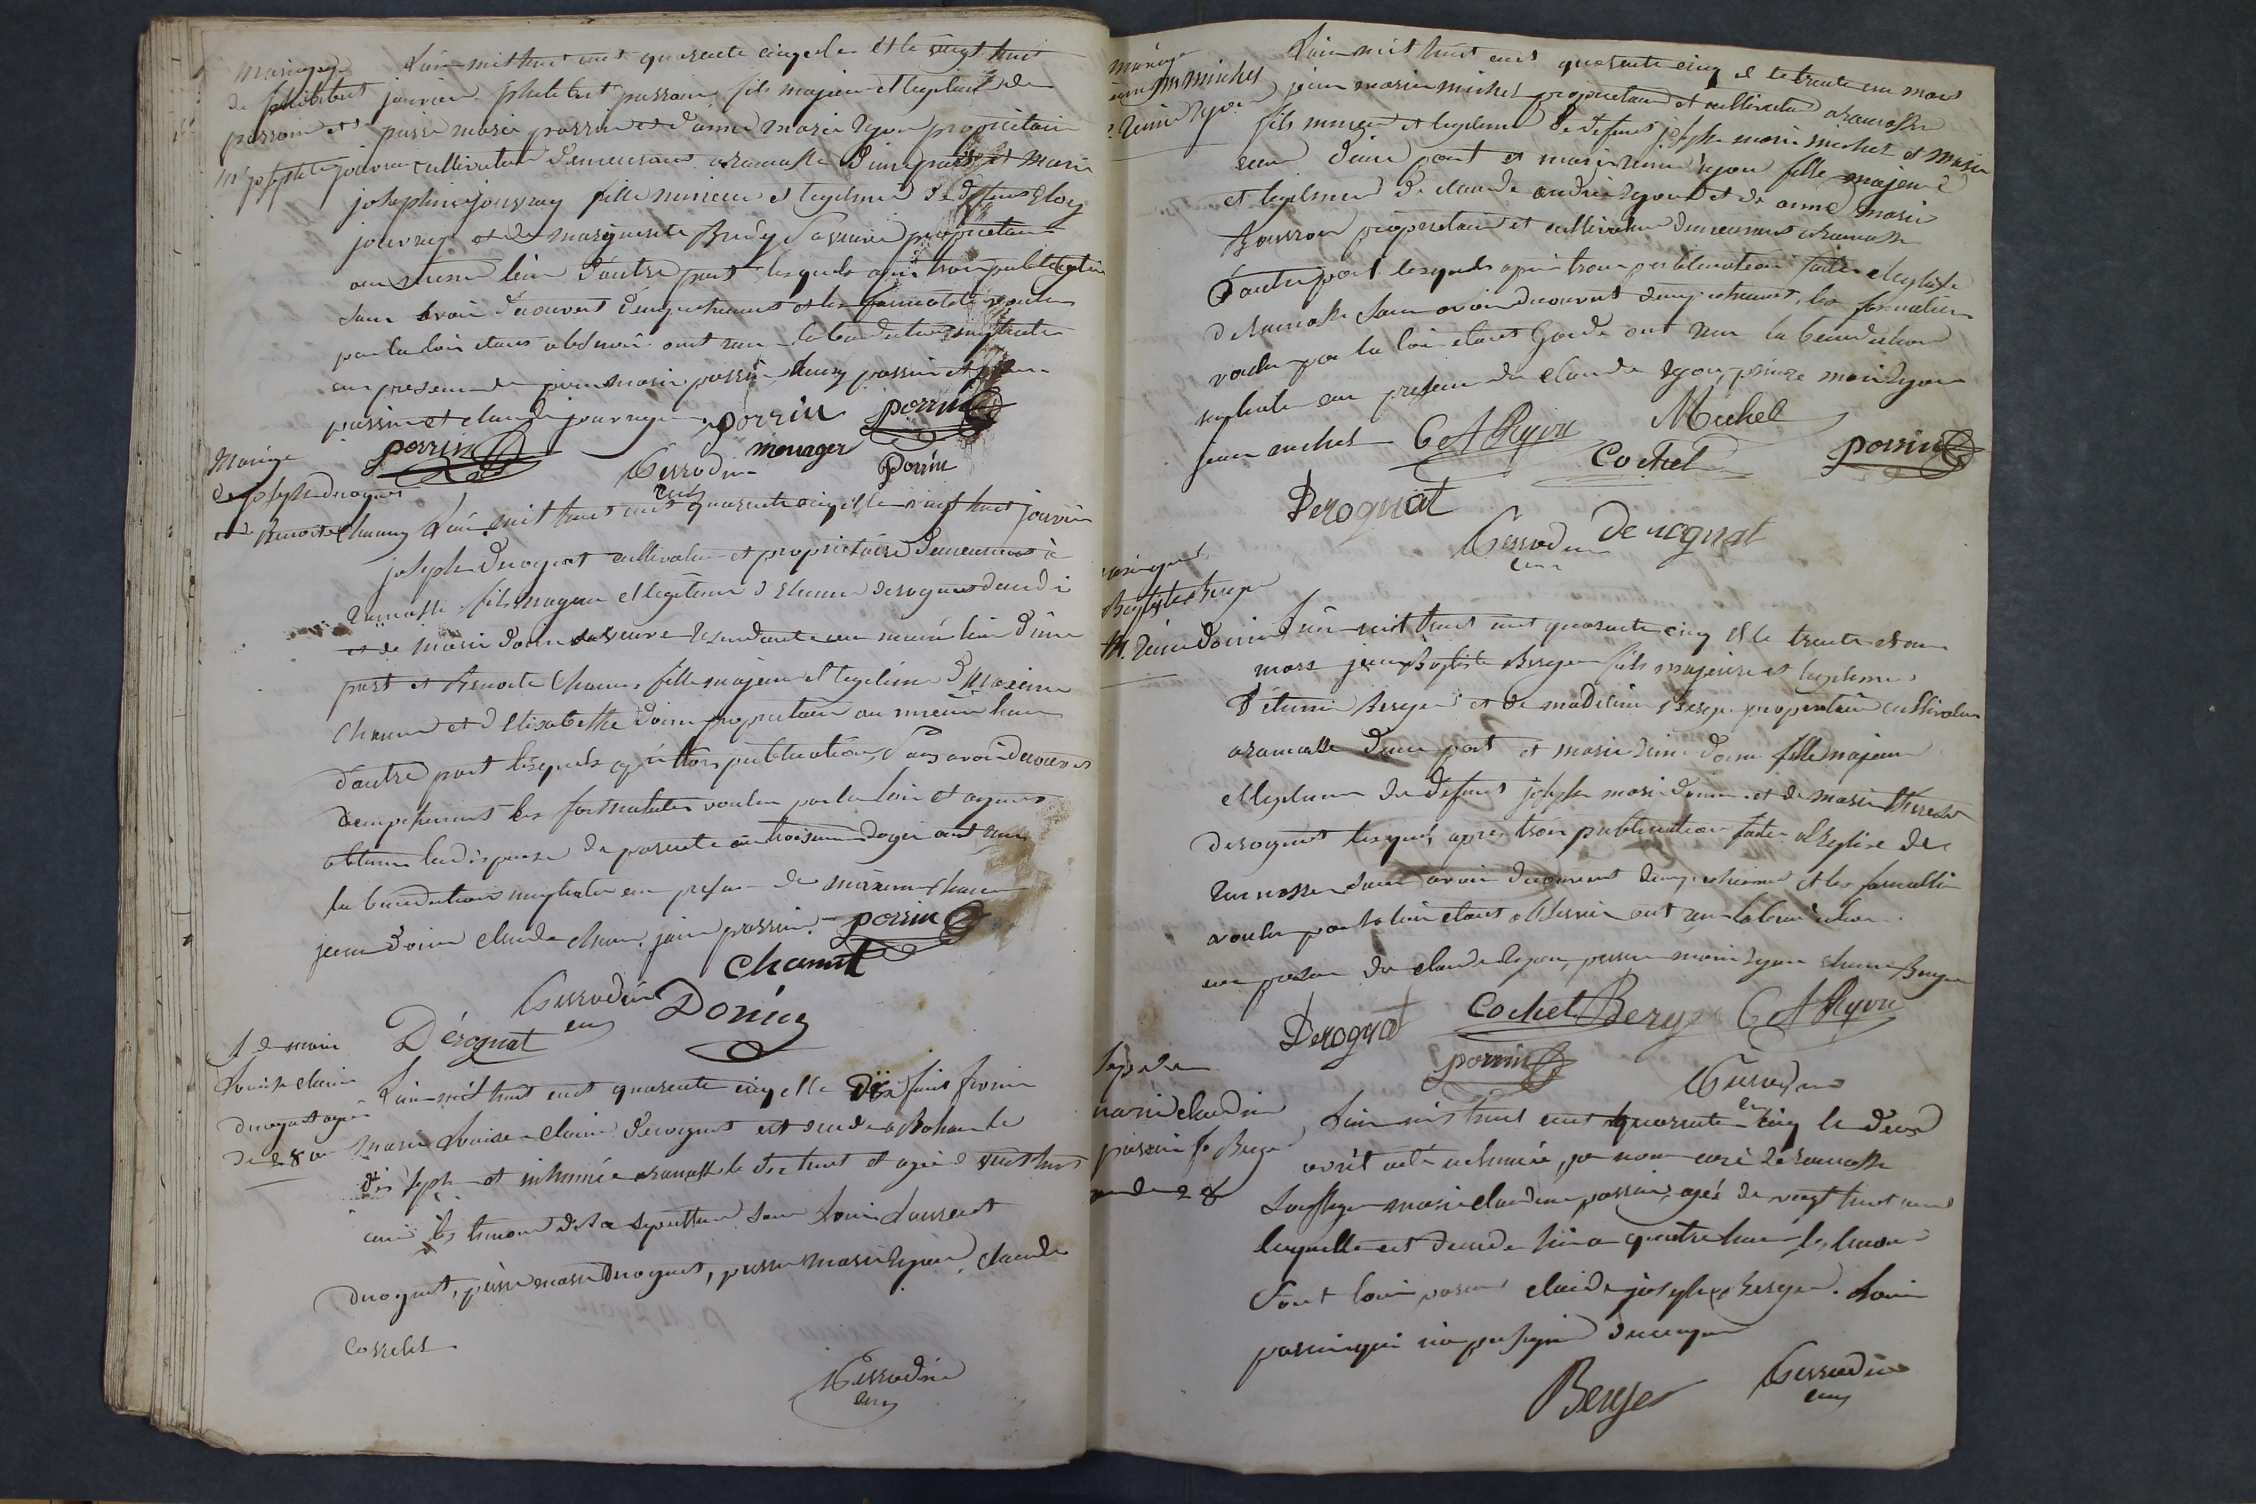 mariage
de philibert
perrin et
m. josephte jouvray
L'an mil huit cent quarante cinq et le vingt huit
janvier philibert perrin fils majeur et legitime de
pierre marie perrin et d'anne marie Ryon propriétaire
cultivateur demeurant a ramasse d'une part et marie
josephine jouvray fille mineure et legitime de defunt Eloy
jouvray et de marguerite Brédy sa veuve propriétaire
au meme lieu d'autre part lesquels après trois publications
sans avoir découvert d'empechement et les formalités voulues
par la loi étant observé ont recu la benediction nuptiale
en presence de jean marie perrin
perrin et claude jouvray perrin porrin
porrin monager
Gerrodin porrin
curé
Mariage
de joseph derognat
et Benoite Chanu
L'an mil huit cent quarante cinq et le vingt huit janvier
joseph derognat cultivateur et propriétaire demeurant à
ramasse fils majeur et legitime d'etienne derognat décédé
et de marie donin sa veuve residante au meme lieu d'une
part et Benoite Chanu fille majeure et legitime de
Chanu et d'Elisabethe donin propriétaire au meme lieu
d'autre part lesquels après trois publications sans avoir découvert
d'empechement les formalités voulues par la loi et ayant
obtenu la dispense de parenté au troisieme degré ont recu
la benediction nuptiale en presence de Chanu
jean donin claude chanu, jean perrin. porrin
chanut
Gerrodin Donin
curé Dérognat
S. de marie
Louise claire
derognat agée
de 28 ans
L'an mil huit cent quarante cinq et le dix sept fevrier
marie Louise claire derognat est décédée a Bohan le
dix sept et inhumée a ramasse le dix huit et agée de vingt huit
ans les temoins de sa sepulture sont Louis Laurent
derognat, pierre marie derognat, pierre marie Ryon, claude
Corselet
Gerrodin
curé
mariage
jean m. michel
Reine Ryon
L'an mil huit cent quarante cinq et le trente un mars
jean marie michel propriétaire et cultivateur a ramasse
fils mineur et legitime de defunts joseph marie michel et marie
d'une part et marie reine Ryon fille majeure
et legitime de claude andré Ryon et de anne marie
propriétaire et cultivateur demeurant a ramasse
d'autre part lesquels après trois publications faites a l'eglise
de ramasse sans avoir découvert d'empechement, les formalités
voulues par la loi étant gardé ont recu la benediction
nuptiale en presence de claude Ryon, pierre marie Ryon
jean michel C A Ryon Michel
Cochet porrin
Derognat
Gerrodin derognat
curé
mariage
Baptiste Berger
M. Reine Donin
L'an mil huit cent quarante cinq et le trente et un
mars jean Baptiste Berger fils majeur et legitime
d'etienne Berger et de madeleine Berger propriétaire cultivateur
a ramasse d'une part et marie Reine donin fille majeure
et legitime de defunt joseph marie donin et de marie therese
derognat lesquels après trois publications faites a l'Eglise de
ramasse sans avoir découvert d'empechement et les formalités
voulues par la loi étant observé ont recu la benediction
en presence de claude Ryon, pierre marie Ryon etienne Berger
Derognat Cochet Berger C A Ryon
porrin
Gerrodin
curé
Sepulture
marie claudine
perrin fe Berger
agée de 28
L'an mil huit cent quarante cinq le deux
avril a été inhumée, par nous curé de ramasse
soussigné marie claudine perrin, agée de vingt huit ans
laquelle est décédée hier a quatre heures les temoins
sont louis perrin claude joseph Berger. Louis
perrin qui n'a pu signé de ce requis
Berger Gerrodin
curé